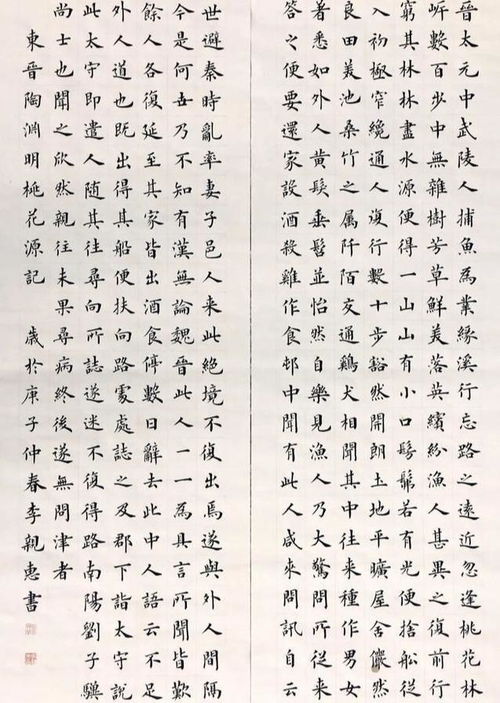 晉太元中武陵人捕魚為業緣溪行忘路之遠近忽逢桃花林
岸數百步中無雜樹芳草鮮美落英繽紛漁人甚異之復前行
窮其林林盡水源便得一山山有小口髣髴若有光便捨船從
入初極窄纔通人復行數十步豁然開朗土地平曠屋舍儼然
良田美池桑竹之属阡陌交通鷄犬相聞其中往来種作男女
著悉如外人黃髮垂髫並怡然自樂見漁人乃大驚問所從来
答之便要還家設酒殺雞作食邨中聞有此人咸來問訊自云
世避秦時亂率妻子邑人来此絕境不復出焉遂與外人間隔
今是何世乃不知有漢無論魏晉此人一一為具言所聞皆歎
餘人各復延至其家皆出酒食停數日辭去此中人語云不足
外人道也既出得其船便扶向路處處誌之及郡下詣太守說
此太守即遣人随其往尋向所誌遂迷不復得路南陽劉子驥
尚士也聞之欣然親往未果尋病終後遂無問津者
東晉陶淵明桃花源記 歲於庚子仲春李親惠書